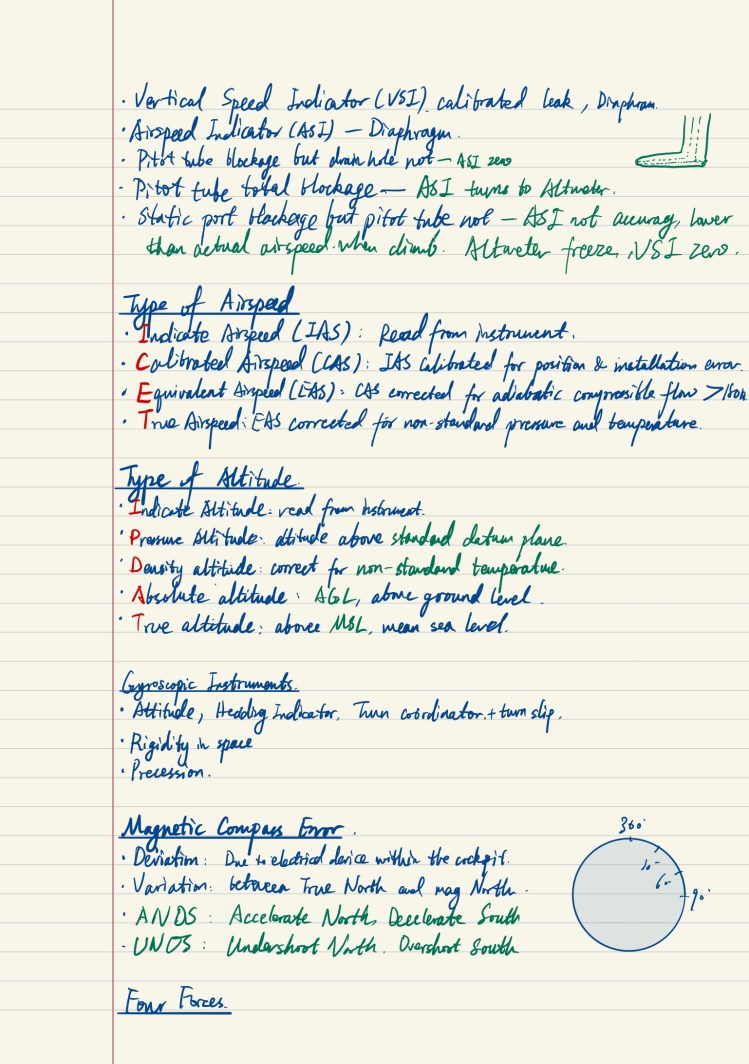 · Vertical Speed Indicator (VSI) calibrated leak, Diaphram.
· Airspeed Indicator (ASI) — Diaphragm.
· Pitot tube blockage but drain hole not — ASI zero
· Pitot tube total blockage — ASI turns to Altimeter.
· Static port blockage but pitot tube not — ASI not accuracy, lower
than actual airspeed when climb. Altimeter freeze, VSI zero.
Type of Airspeed
· Indicate Airspeed (IAS): Read from instrument.
· Calibrated Airspeed (CAS): IAS calibrated for position & installation error.
· Equivalent Airspeed (EAS): CAS corrected for adiabatic compressible flow >
· True Airspeed: EAS corrected for non-standard pressure and temperature.
Type of Altitude.
· Indicate Altitude: read from instrument.
· Pressure Altitude: altitude above standard datum plane.
· Density altitude: correct for non-standard temperature.
· Absolute altitude: AGL, above ground level.
· True altitude: above MSL, mean sea level.
Gyroscopic Instruments.
· Attitude, Hedding Indicator, Turn coordinator. + turn slip.
· Rigidity in space
· Precession.
Magnetic Compass Error.
360°
· Deviation: Due to electrical device within the cockpit.
· Variation: between True North and mag North.
90°
· ANDS: Accelerate North, Decelerate South
· UNOS: Undershoot North. Overshoot South
Four Forces.